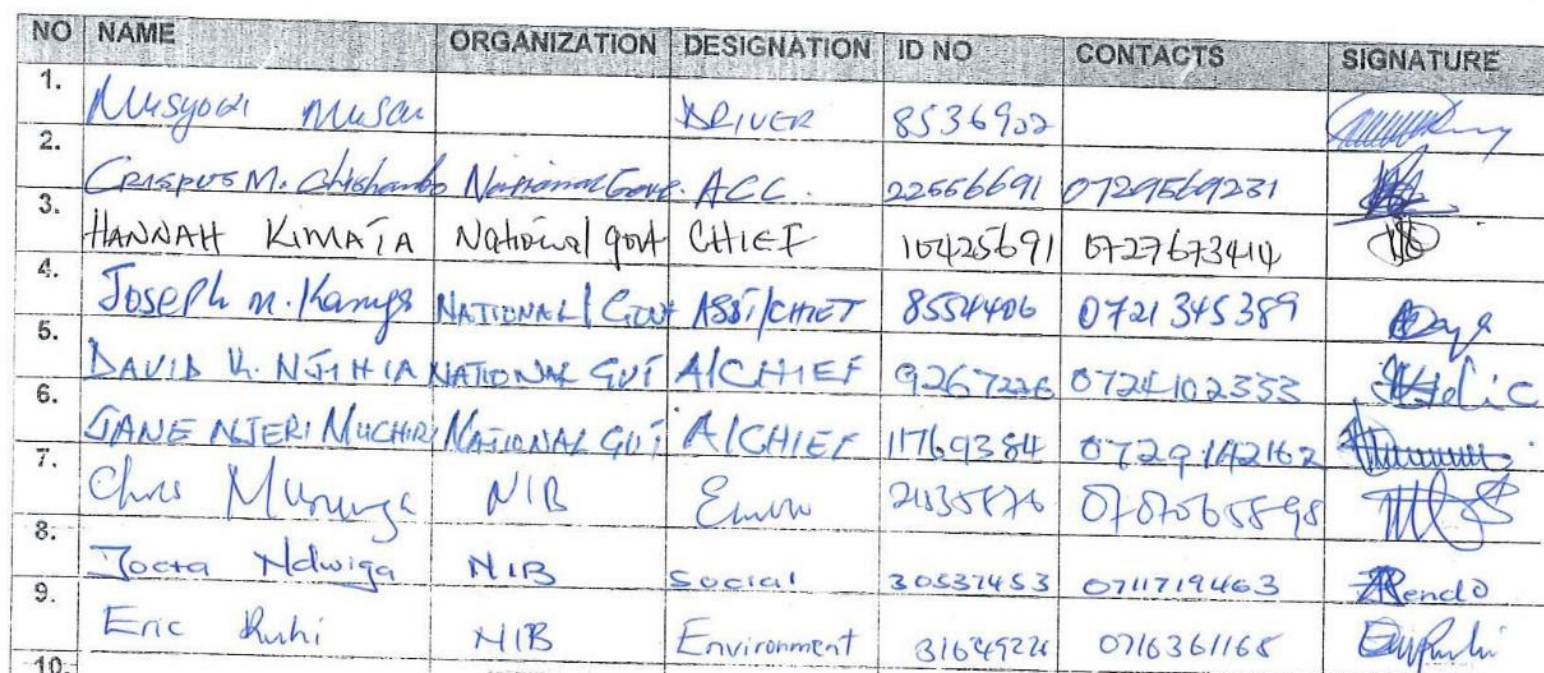 NO NAME ORGANIZATION DESIGNATION ID NO CONTACTS SIGNATURE
1. Musyoki Musau DRIVER 8536902
2. CRISPUS M. Chishambo National Govt. ACC. 22556691 0729569231
3. HANNAH KIMATA National govt CHIEF 10425691 0727673414
4. Joseph M. NATIONAL GOVT ASSI/CHIEF 8554406 0721345389
5. DAVID K. NJIHIA NATIONAL GVT A/CHIEF 9267226 0724102333
6. JANE NJERI MUCHIRI NATIONAL GVT A/CHIEF 11769384 0729142162
7. Chris NIB
8. Ndwiga NIB Social 30537453 0711719463
9. Eric Ruhi NIB Environment 0716361168
10.